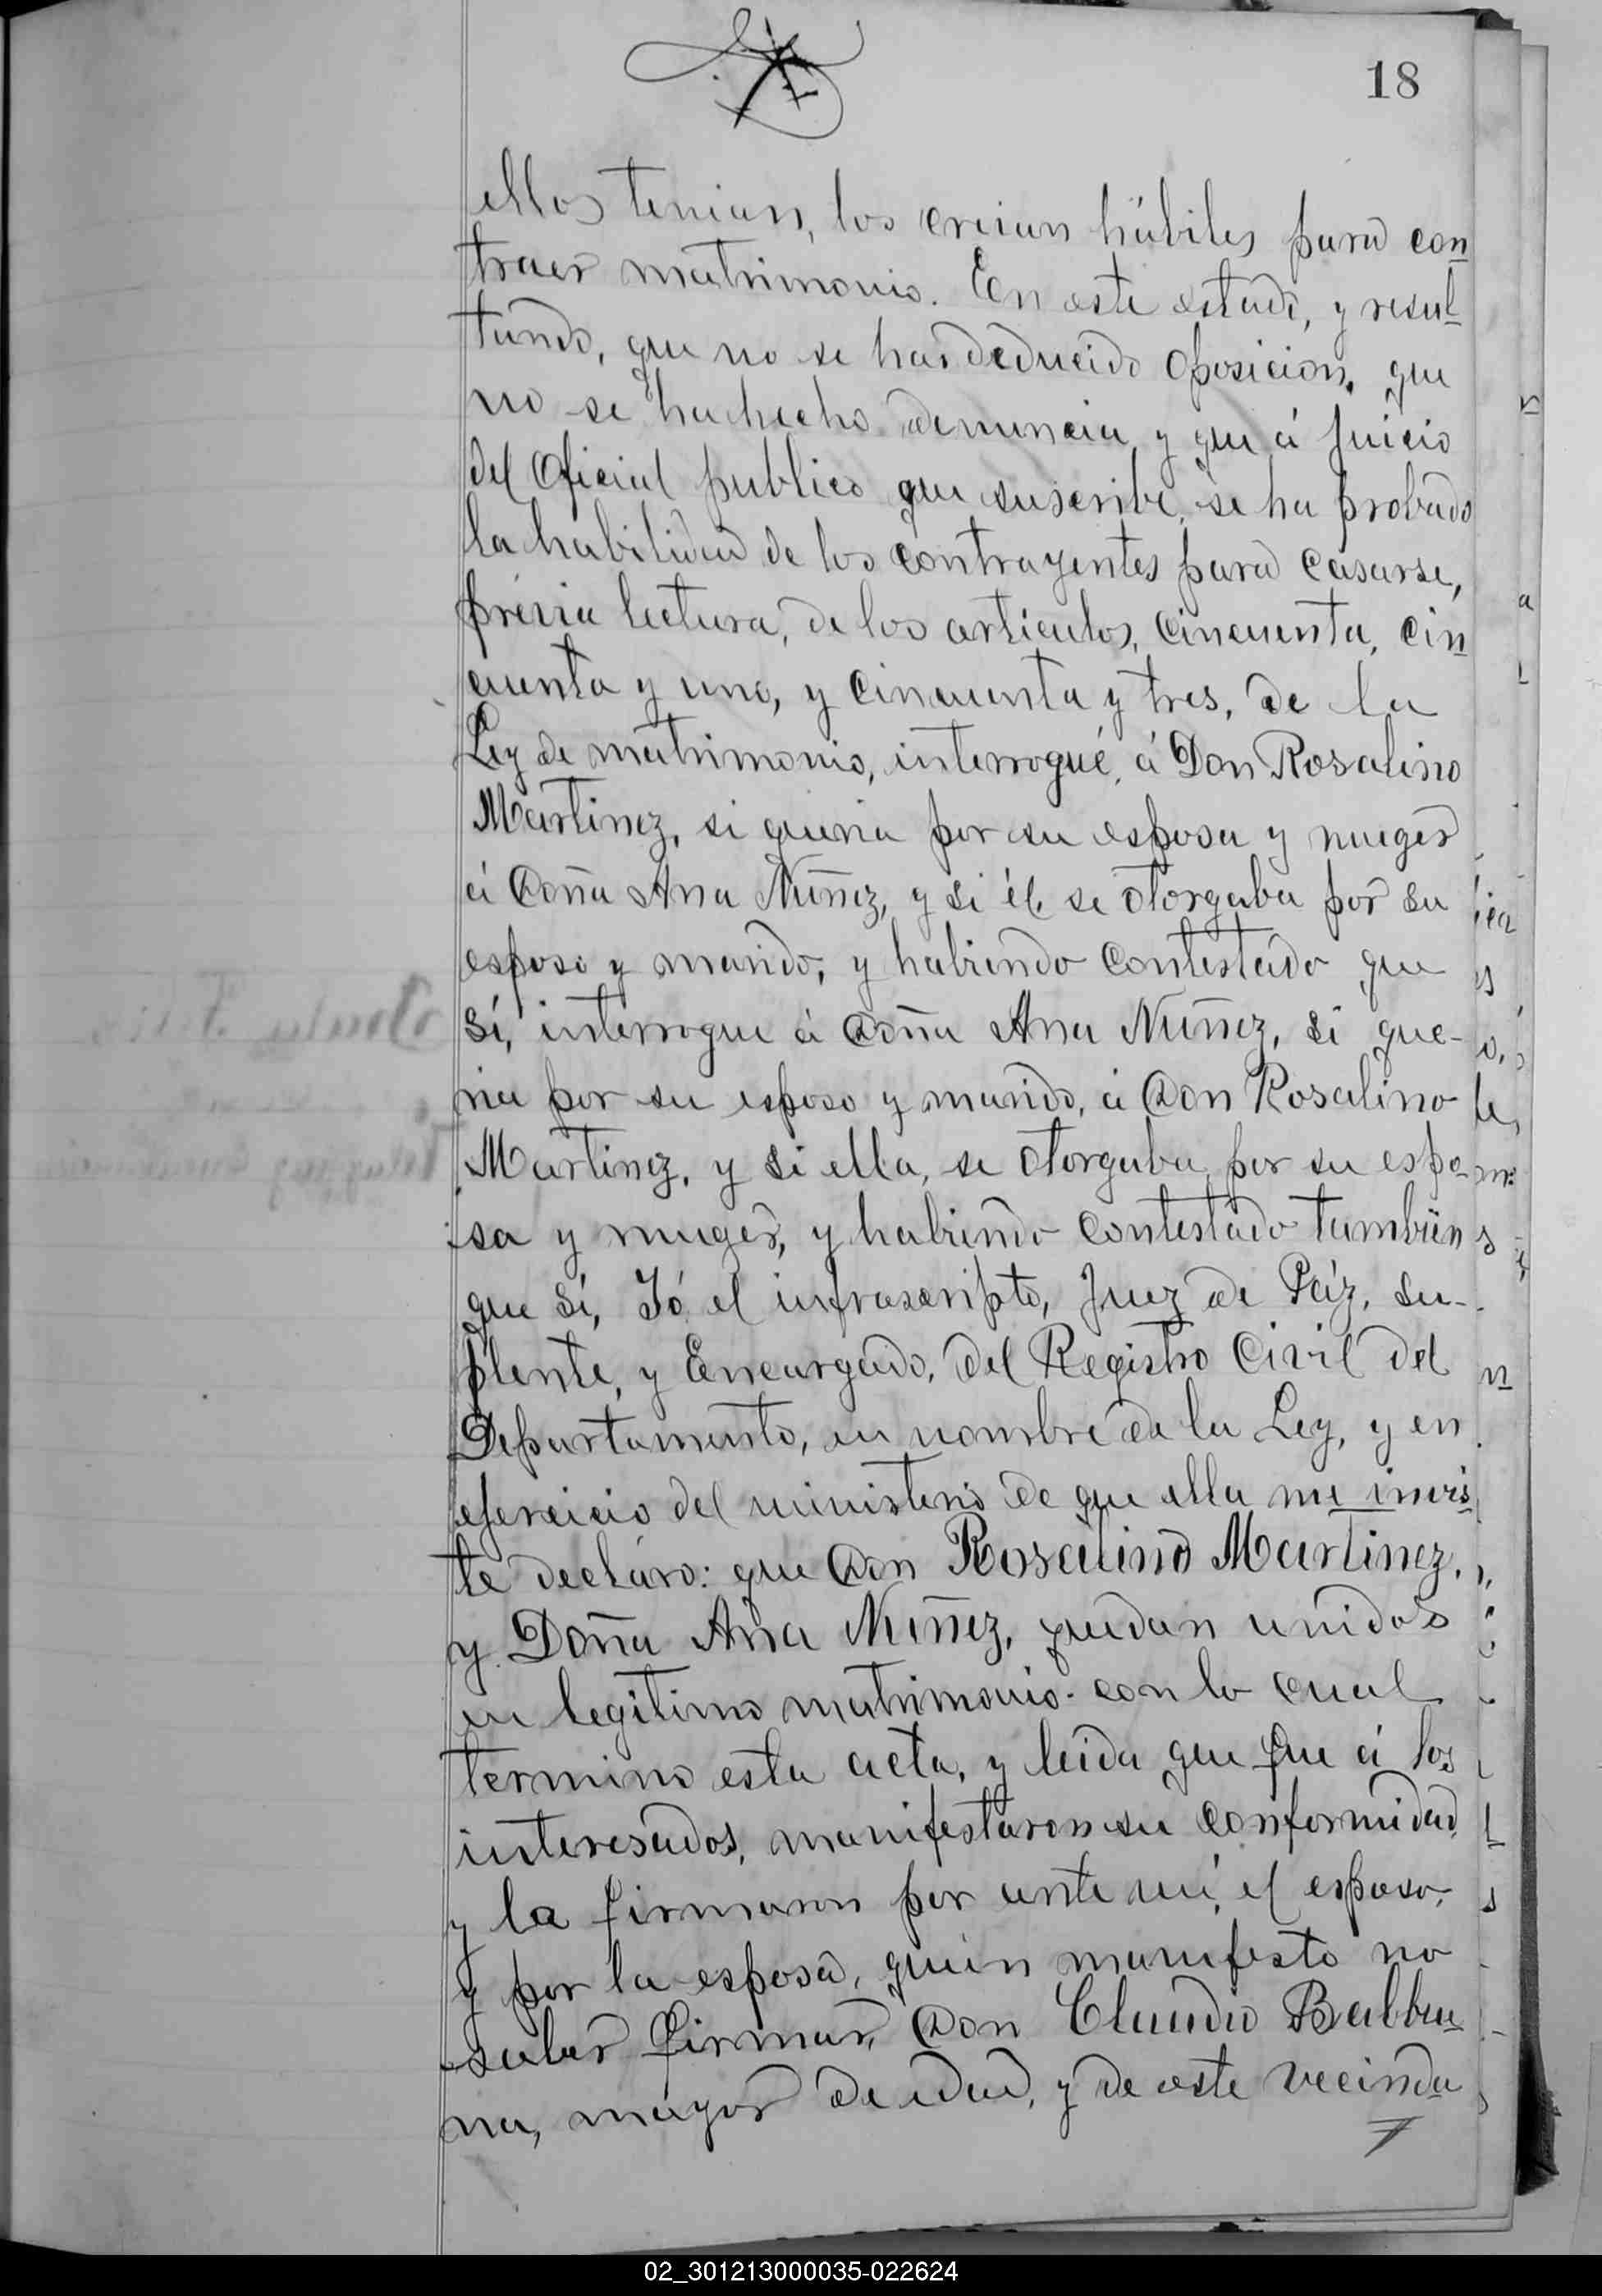 18
ellos tenian, los creian hábiles para con
traer matrimonio. En este estado, y resul
tando, que no se ha deducido oposicion, que
no se ha hecho denuncia y que á juicio
del Oficial publico que suscribe, se ha probado
la habilidad de los contrayentes para casarse,
prévia lectura, de los articulos, cincuenta, cin
cuenta y uno, y cincuenta y tres, de la
Ley de matrimonio, interrogué, á Don Rosalino
Martinez, si queria por su esposa y muger
á Doña Ana Nuñez, y si él se otorgaba por su
esposo y marido, y habiendo contestado que
Sí, interrogue á Doña Ana Nuñez, si que-
ria por su esposo y marido, á Don Rosalino
Martinez, y si ella, se otorgaba por su espo-
sa y muger, y habiendo contestado tambien
que Sí, Yó el infrascripto, Juez de Páz, su-
plente, y Encargado, del Registro Civil del
Departamento, en nombre de la Ley, y en
ejercicio del ministerio de que ella me invis
te decláro: que Don Rosalino Martinez,
y Doña Ana Nuñez, quedan unidos
en legitimo matrimonio. con lo cual
termino esta acta, y leida que fue á los
interesados, manifestaron su conformidad
y la firmaron por ante mí, el esposo,
y por la esposa, quien manifesto no
saber firmar, Don Claudio Balbu
na, mayor de edad, y de este vecinda
02_301213000035-022624